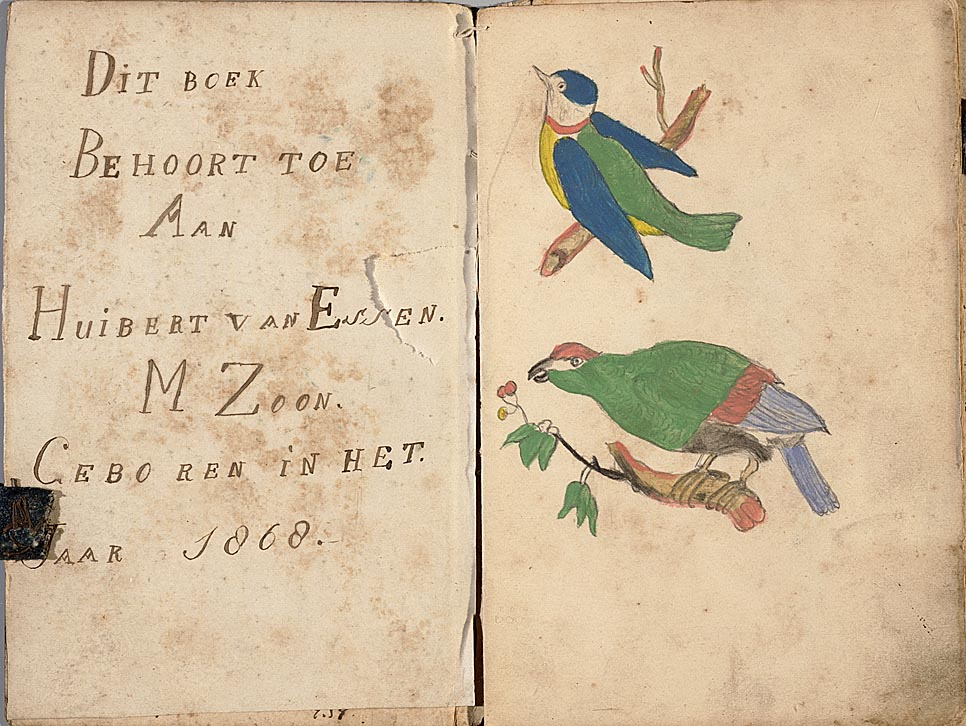 Dit boek
Behoort toe
Aan
Huibert van Essen.
M Zoon.
Geboren in het.
Jaar 1868.